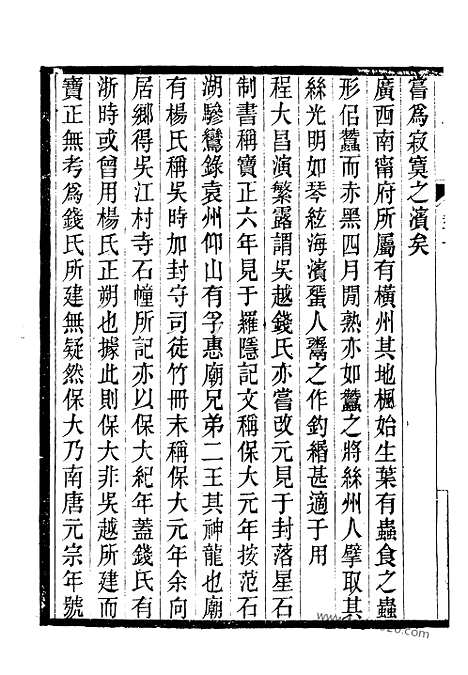 嘗爲寂寞之濱矣
廣西南甯府所屬有橫州其地楓始生葉有蟲食之蟲
形侣蠶而赤黑四月閒熟亦如蠶之將絲州人擘取其
絲光明如琴絃海濱蜑人鬻之作釣緡甚適于用
程大昌演繁露謂吳越錢氏亦嘗改元見于封落星石
制書稱寶正六年見于羅隱記文稱保大元年按范石
湖驂鸞錄袁州仰山有孚惠廟兄弟二王其神龍也廟
有楊氏稱吳時加封守司徒竹冊末稱保大元年余向
居鄉得吳江村寺石幢所記亦以保大紀年蓋錢氏有
浙時或曾用楊氏正朔也據此則保大非吳越所建而
寶正無考爲錢氏所建無疑然保大乃南唐元宗年號